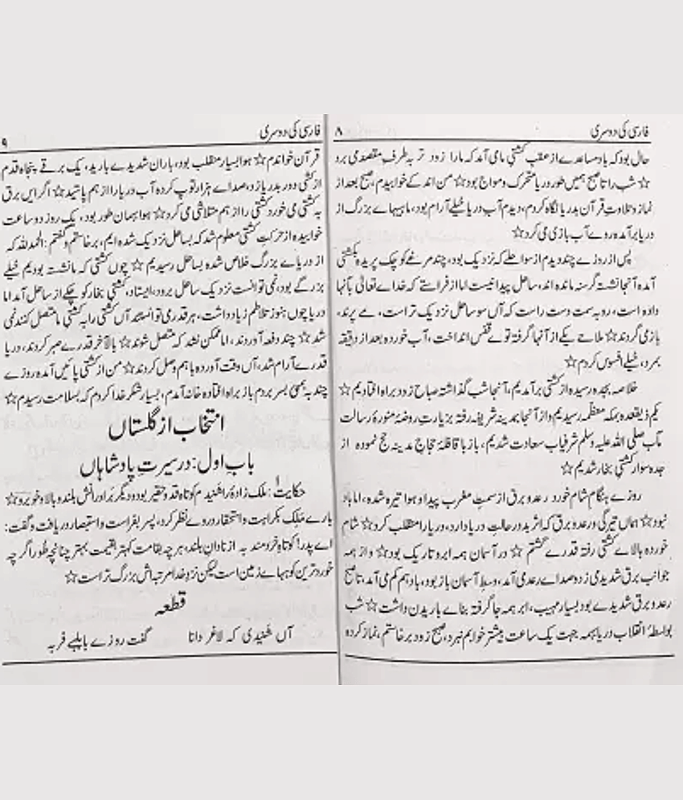 فارسی کی دوسری ۸
حال بود کہ باد مساعدے از عقب کشتی ما می آمد کہ مارا زود تر بہ طرفِ مقصد می برد
☆ شب را تا صبح ہمیں طور دریا متحرک و مواج بود ☆ من اند کے خوابیدم، صبح بعد از
نماز و تلاوتِ قرآن بدریا نگاہ کردم، دیدم آب دریا خیلے آرام بود، ماہیہاے بزرگ از
دریا برآمدہ روے آب بازی می کرد ☆
پس از روزے چند دیدم از سواحلے کہ نزدیک بود، چند مرغے کوچک پریدہ بکشتی
آمدہ آنجا نشستہ گرسنہ ماندہ اند، ساحل پیدا نیست اما از فراستے کہ خداے تعالی بآنہا
دادہ است، رو بہ سمت دست راست کہ آں سو ساحل نزدیک تر است، مے پرند،
باز می گردند ☆ ملاحے یکے از آنہا گرفتہ توے قفس انداخت، آب خوردہ بعد از دقیقہ
بمرد، خیلے افسوس کردم ☆
خلاصہ بجدہ رسیدہ از کشتی برآمدیم، آنجا شب گذاشتہ صباح زود براہ افتادیم ☆
یکم ذیقعدہ بمکہ معظمہ رسیدیم و از آنجا بمدینہ شریفہ رفتہ بزیارتِ روضۂ منورۂ رسالت
مآب صلی اللہ علیہ وسلم شرفیاب سعادت شدیم، باز با قافلۂ حجاج مدینہ حج نمودہ از
جدہ سوار کشتیِ بخار شدیم ☆
روزے ہنگام شام خورد رعد و برق از سمتِ مغرب پیدا و ہوا تیرہ شدہ، اما باد
نبود ☆ ہماں تیرگی و رعد و برق کہ اثر بد در حالت دریا دارد، دریا را منقلب کرد ☆ شام
خوردہ بالاے کشتی رفتہ قدرے گشتم ☆ در آسمان ہمہ ابر و تاریک بود ☆ و از ہمہ
جوانب برق شدیدی می زد و صداے رعد می آمد، وسطِ آسمان باز بود، باد ہم کم می آمد، تا صبح
رعد و برق شدیدے بود بسیار مہیب، ابر ہمہ جا گرفتہ بناے باریدن داشت ☆ شب
بواسطۂ انقلاب دریا ہمہ جہت یک ساعت بیشتر خوابم نبرد، صبح زود برخاستم، نماز کردہ
فارسی کی دوسری ۹
قرآن خواندم ☆ ہوا بسیار منقلب بود، باران شدیدے بارید، یک برقے پنجاہ قدم
از کشی دور بدریا زد، صداے ہزار توپ کردہ آب دریا را از ہم پاشید ☆ اگر ایں برق
بہ کشتی می خورد کشتی را از ہم متلاشی می کرد ☆ ہوا ہمان طور بود، یک روز دو ساعت
خوابیدہ از حرکتِ کشتی معلوم شد کہ بساحل نزدیک شدہ ایم، برخاستم و گفتم : الحمد للہ کہ
از دریاے بزرگ خلاص شدہ بساحل رسیدیم ☆ چوں کشتی کہ ما نشستہ بودیم خیلے
بزرگے بود، نمی توانست نزدیک ساحل برود، ایستاد، کشتیِ بخار کوچکے از ساحل آمد اما
دریا چوں ہنوز تلاطم زیاد داشت، ہر قدر می توانستند آں کشتی را بہ کشتیِ ما متصل کنند نمی
شد ☆ چند دفعہ آوردند، اما ممکن نشد کہ متصل شوند ☆ بالآخر قدرے صبر کردند، دریا
قدرے آرام شد، آں وقت آوردہ باہم وصل کردند ☆ من از کشتی پائیں آمدہ روزے
چند بہ بمبئی بسر بردم باز براہ افتادہ خانہ آمدم، بسیار شکر خدا کردم کہ بسلامت رسیدم ☆
انتخاب از گلستاں
باب اول : در سیرتِ پادشاہاں
حکایت: ملک زادۂ را شنیدم کوتاہ قد و حقیر بود و دیگر برادرانش بلند و بالا و خوبرو ☆
بارے ملِک بکراہت و استحقار در وے نظر کرد، پسر بفراست و استبصار دریافت و گفت :
اے پدر! کوتاہ خردمند بہ از نادان بلند، ہر چہ بقامت کہتر بقیمت بہتر چنانچہ طور اگر چہ
خورد ترین کوہہاے زمین است لیکن نزد خدا مرتبہ اش بزرگ تر است ☆
قطعہ
آں شنیدی کہ لاغر دانا گفت روزے بابلہے فربہ